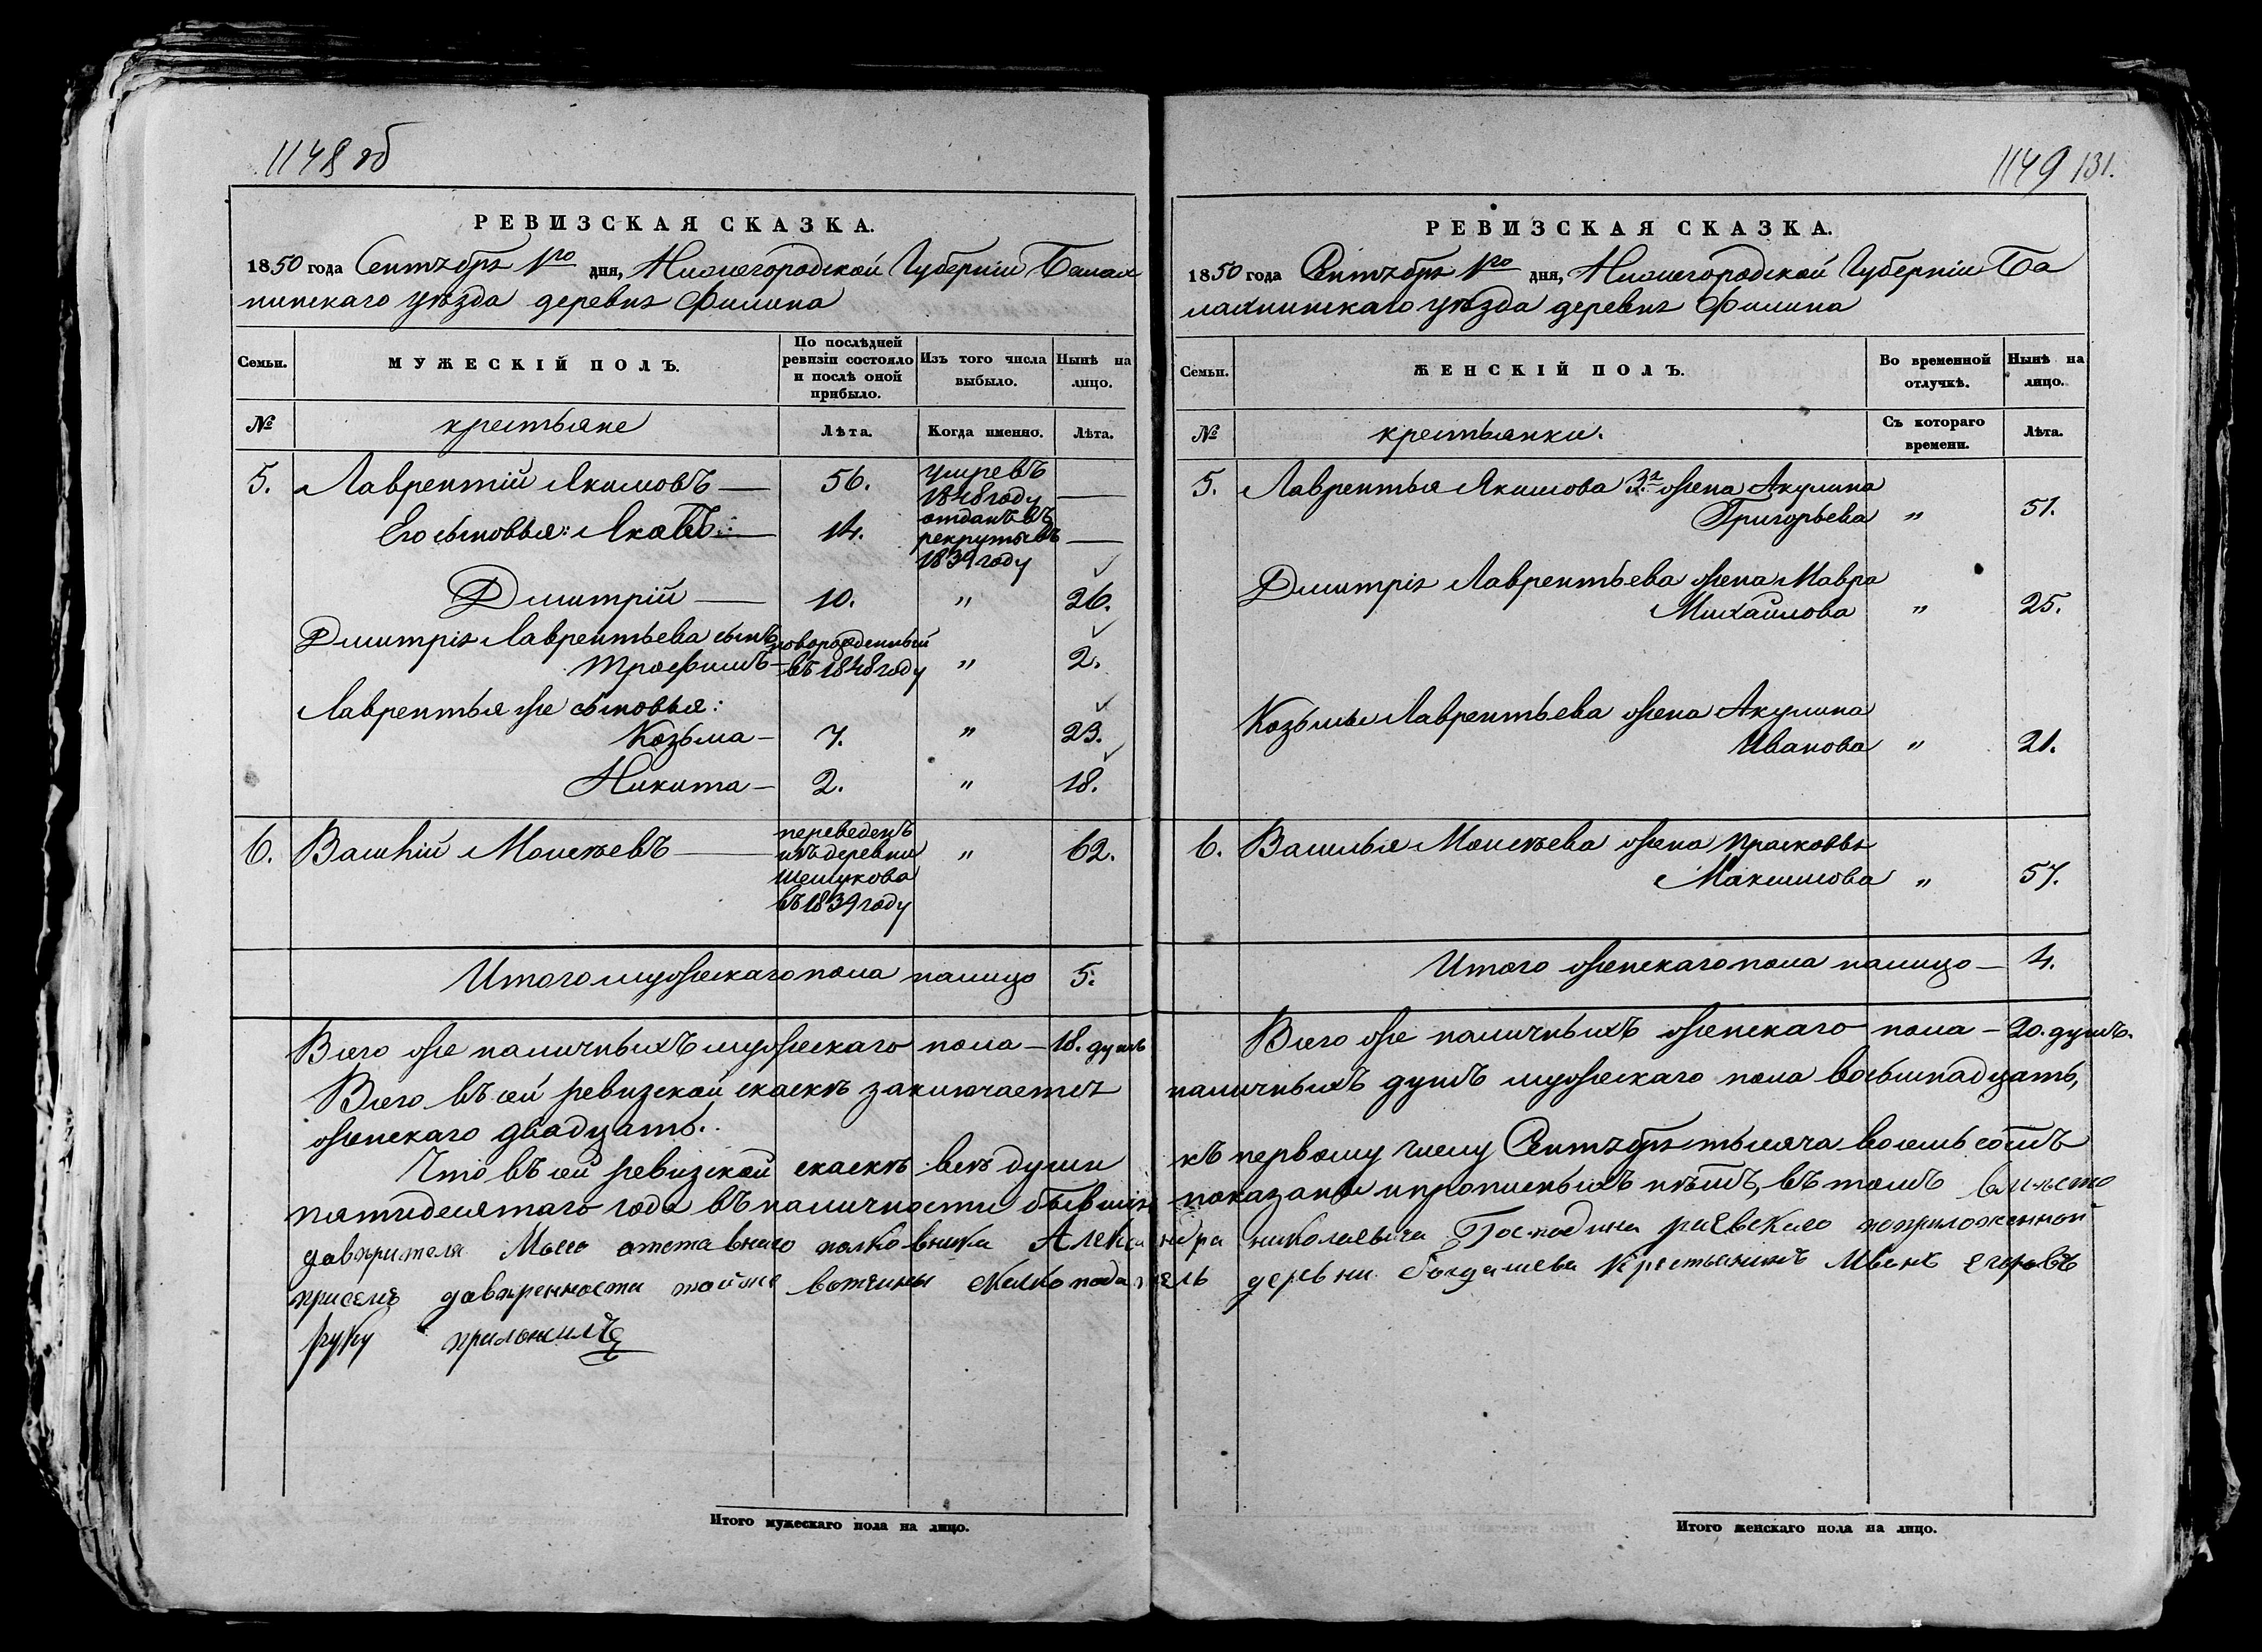 1148 об
РЕВИЗСКАЯ СКАЗКА.
1850 года Сентября 1го дня, Нижегородской Губерніи Балах
нинскаго уѣзда деревня Филина
Семьи.
МУЖЕСКІЙ ПОЛЪ.
По послѣдней
ревизіи состояло
и послѣ оной
прибыло.
Изъ того числа
выбыло.
Нынѣ на
лицо.
№
крестьяне
Лѣта.
Когда именно.
Лѣта.
5. Лаврентій Якимовъ — 56. умревъ
1848 году —
Его сыновья: Яковъ — 14. отданъ въ
рекруты въ
1839 году —
Дмитрій — 10. " 26.
Дмитрія Лаврентьева сынъ новорожденный
Трофимъ — въ 1848 году " 2.
Лаврентья же сыновья:
Козьма — 7. " 23.
Никита — 2. " 18.
6. Василій Моисѣевъ — переведенъ " 62.
изъ деревни
въ 1839 году
Итого мужескаго пола налицо 5.
Всего же наличныхъ мужескаго пола — 18. душъ
Всего въ сей ревизской сказкѣ заключается
женскаго двадцать.
Что въ сей ревизской сказкѣ всѣ души
пятидесятаго года въ наличности бывшія
давѣрителя Моего атставнаго полковника Алекса
присемъ давѣренности тойже вотчины
руку приложилъ
Итого мужескаго пола на лицо.
1149 131.
РЕВИЗСКАЯ СКАЗКА.
1850 года Сентября 1го дня, Нижегородской Губерніи Ба
лахнинскаго уѣзда деревня Филина
Семьи.
ЖЕНСКІЙ ПОЛЪ.
Во временной
отлучкѣ.
Нынѣ на
лицо.
№
крестьянки.
Съ котораго
времени.
Лѣта.
5. Лаврентья Якимова 3я жена Акулина
Григорьева " 51.
Дмитрія Лаврентьева жена Мавра
Михайлова " 25.
Козьмы Лаврентьева жена Акулина
Иванова " 21.
6. Василья Моисѣева жена Прасковья
Максимова " 57.
Итого женскаго пола налицо — 4.
Всего же наличныхъ женскаго пола — 20. душъ.
наличныхъ душъ мужескаго пола восьмнадцать,
къ первому числу Сентября тысяча восемь сотъ
показаны и прописныхъ нѣтъ, въ томъ вместо
ндра николаевича Господина раевскаго поприложенной
деревни крестьянинъ Иванъ Егоровъ
Итого женскаго пола на лицо.